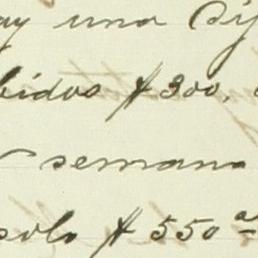 ay una
bidos $300,
semana
solo $550